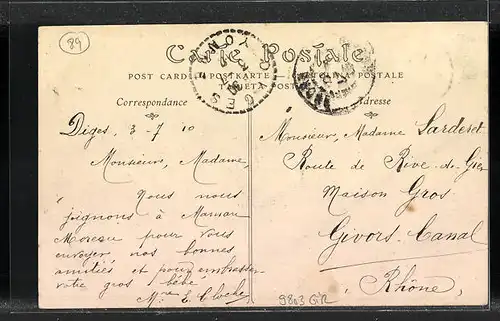 89
Carte Postale
POST CARD POSTKARTE POSTALE
TARJETA POST
Correspondance
Adresse
YONNE
DIGES
Diges, 3-7 10
Monsieur, Madame,
Nous nous
joignons à Maman
Moreau pour vous
envoyer nos bonnes
amitiés et pour embrasser
votre gros bébé
Mme E. Cloche
Monsieur, Madame Sarderet
Route de Rive-de-Gier
Maison Gros
Givors-Canal
Rhône,
9803 GR